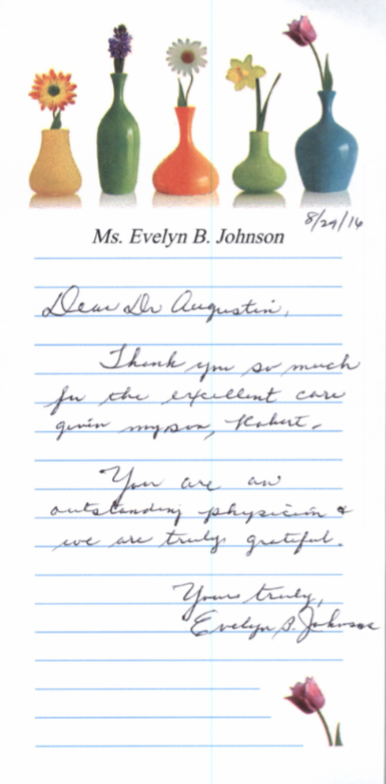 8/29/16
Ms. Evelyn B. Johnson
Dear Dr Augustin,
Thank you so much
for the excellent care
given my son, Robert.
You are an
outstanding physician &
we are truly grateful.
Yours truly,
Evelyn B. Johnson